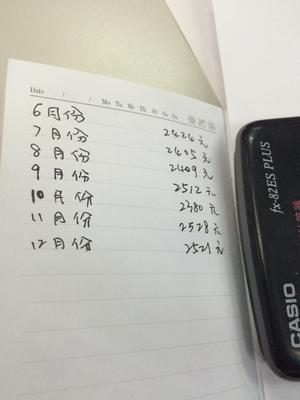 Date / / Mo Tu We Th Fr Sa Su
6月份 2424元
7月份 2405元
8月份 2409元
9月份 2512元
10月份 2380元
11月份 2528元
12月份 2521元
fx-82ES PLUS
CASIO